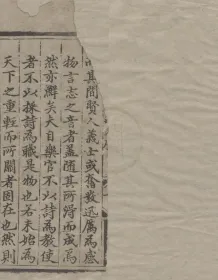 其間賢人義士或奮迅厲為感
物言志之音者蓋隨其所得而成焉
然亦鮮矣夫自樂官不以詩為教使
者不以採詩為職是物也若未始為
天下之重輕而所關者固在也然則